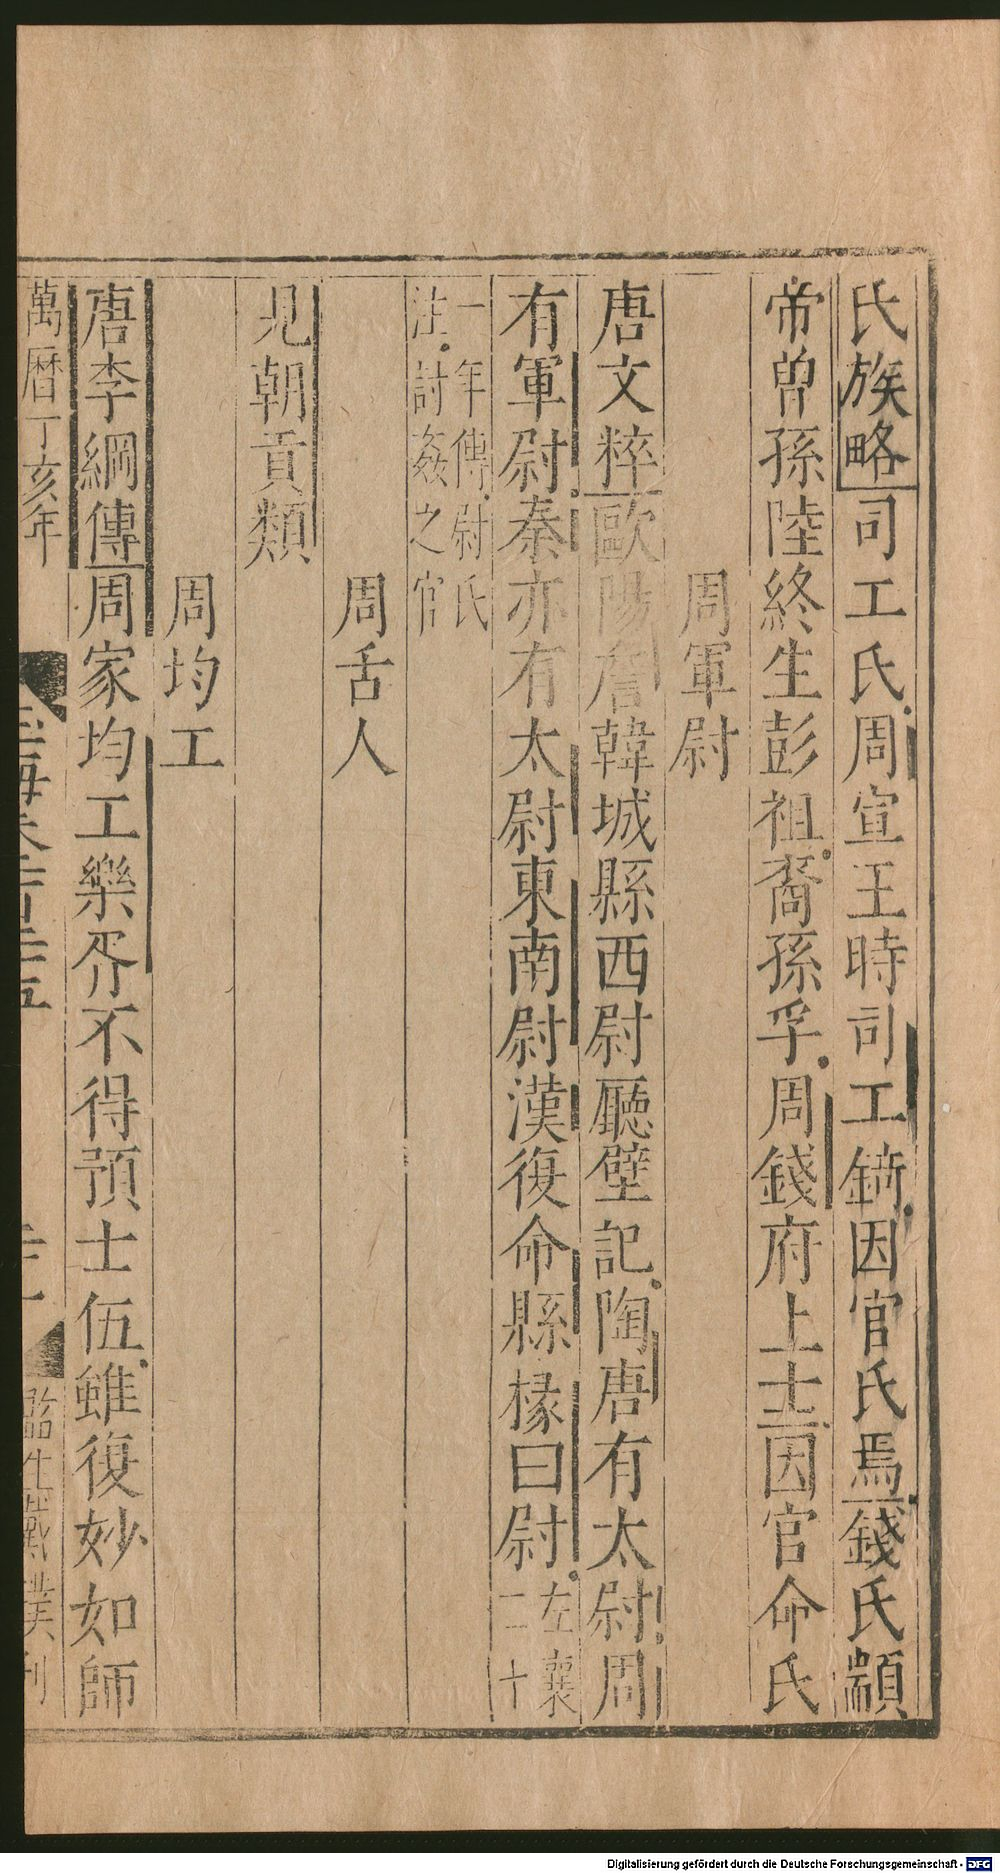 氏族略司工氏周宣王時司工錡因官氏焉錢氏顓
帝曽孫陸終生彭祖裔孫孚周錢府上士因官命氏
周軍尉
唐文粹歐陽詹韓城縣西尉廳壁記陶唐有太尉周
有軍尉秦亦有太尉東南尉漢復命縣椽曰尉左襄二十
一年傳尉氏注討姦之官
周舌人
見朝貢類
周均工
唐李綱傳周家均工樂胥不得預士伍雖復妙如師
萬曆丁亥年 玉海卷一百二十五 二十一 監生戴璞刊
Digitalisierung gefördert durch die Deutsche Forschungsgemeinschaft - DFG